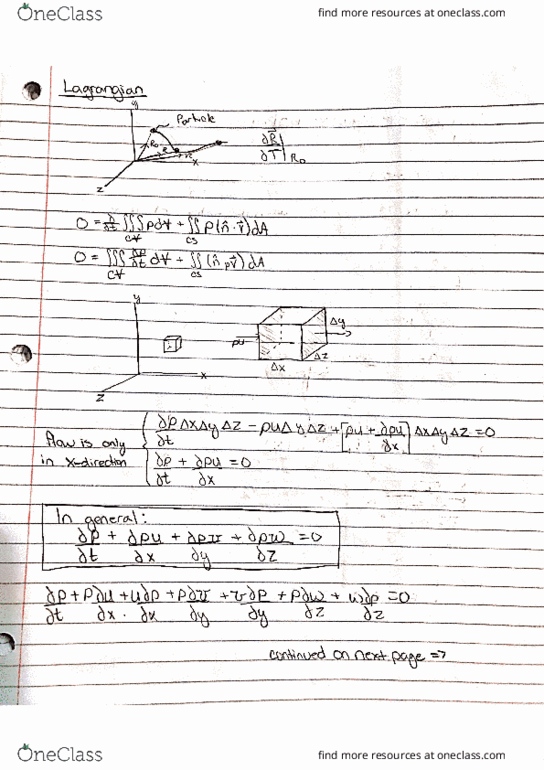 OneClass
find more resources at oneclass.com
Lagrangian
y
Particle
R₀
R
x
z
∂R⃗/∂T |R₀
0 = ∂/∂t ∭ρdV + ∬ρ(n̂·v⃗)dA
CV CS
0 = ∭ ∂ρ/∂t dV + ∬(n̂·ρv⃗)dA
CV CS
y
x
z
ρu
Δy
Δz
Δx
flow is only in x-direction
∂ρ/∂t ΔxΔyΔz - ρuΔyΔz + [ρu + ∂ρu/∂x] ΔxΔyΔz = 0
∂ρ/∂t + ∂ρu/∂x = 0
In general:
∂ρ/∂t + ∂ρu/∂x + ∂ρv/∂y + ∂ρw/∂z = 0
∂ρ/∂t + ρ∂u/∂x + u∂ρ/∂x + ρ∂v/∂y + v∂ρ/∂y + ρ∂w/∂z + w∂ρ/∂z = 0
continued on next page =>
OneClass
find more resources at oneclass.com